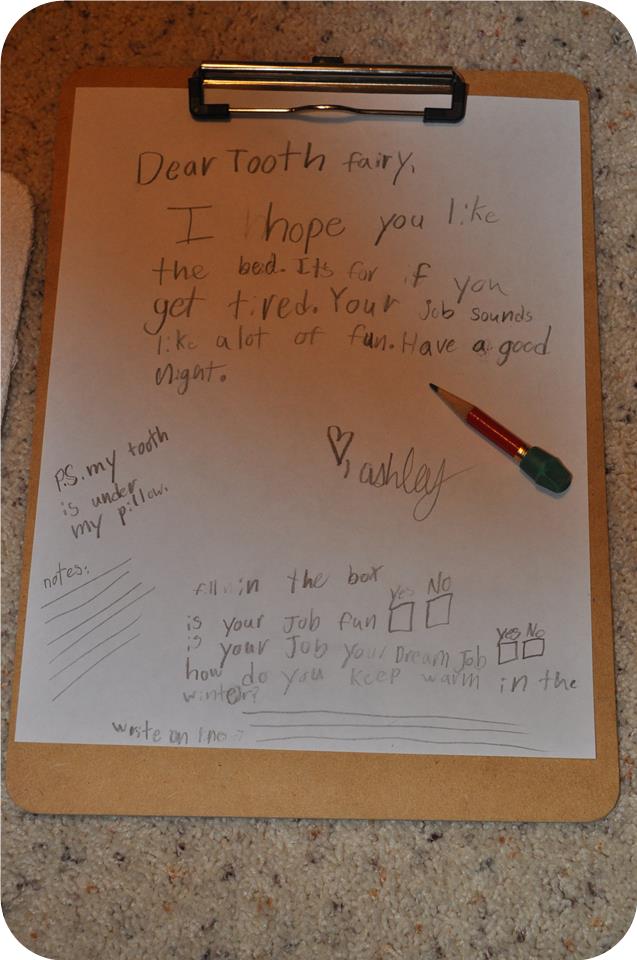 Dear Tooth fairy,
I hope you like
the bed. Its for if you
get tired. Your Job sounds
like a lot of fun. Have a good
night.
♡, ashley
P.S. my tooth
is under
my pillow.
notes:
fill in in the box
Yes No
is your Job fun
Yes No
is your Job your Dream Job
how do you keep warm in the
winter?
write on line